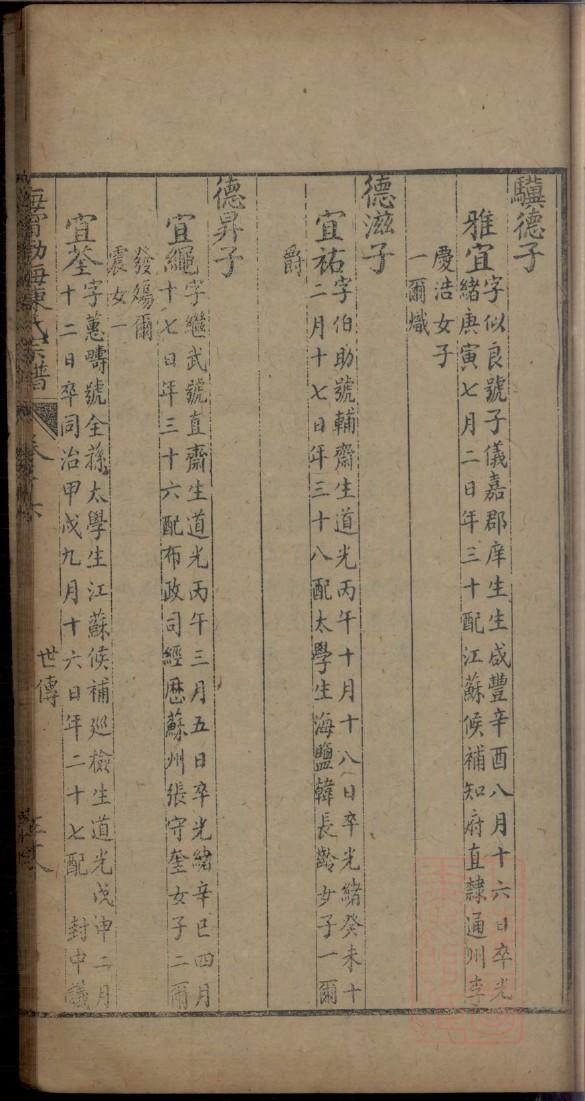 驥德子
雅宜字似良號子儀嘉郡庠生生咸豐辛酉八月十六日卒光
緒庚寅七月二日年三十配江蘇候補知府直隸通州李
慶浩女子
一爾熾
德滋子
宜祐字伯助號輔齋生道光丙午十月十八日卒光緒癸未十
二月十七日年三十八配太學生海鹽韓長齡女子一爾
爵
德昇子
宜繩字繼武號直齋生道光丙午三月五日卒光緒辛巳四月
十七日年三十六配布政司經歷蘇州張守奎女子二爾
發殤爾
震女一
宜荃字蕙疇號全蓀太學生江蘇候補巡檢生道光戊申二月
十二日卒同治甲戌九月十六日年二十七配 封中議
海寧渤海陳氏宗譜
世傳